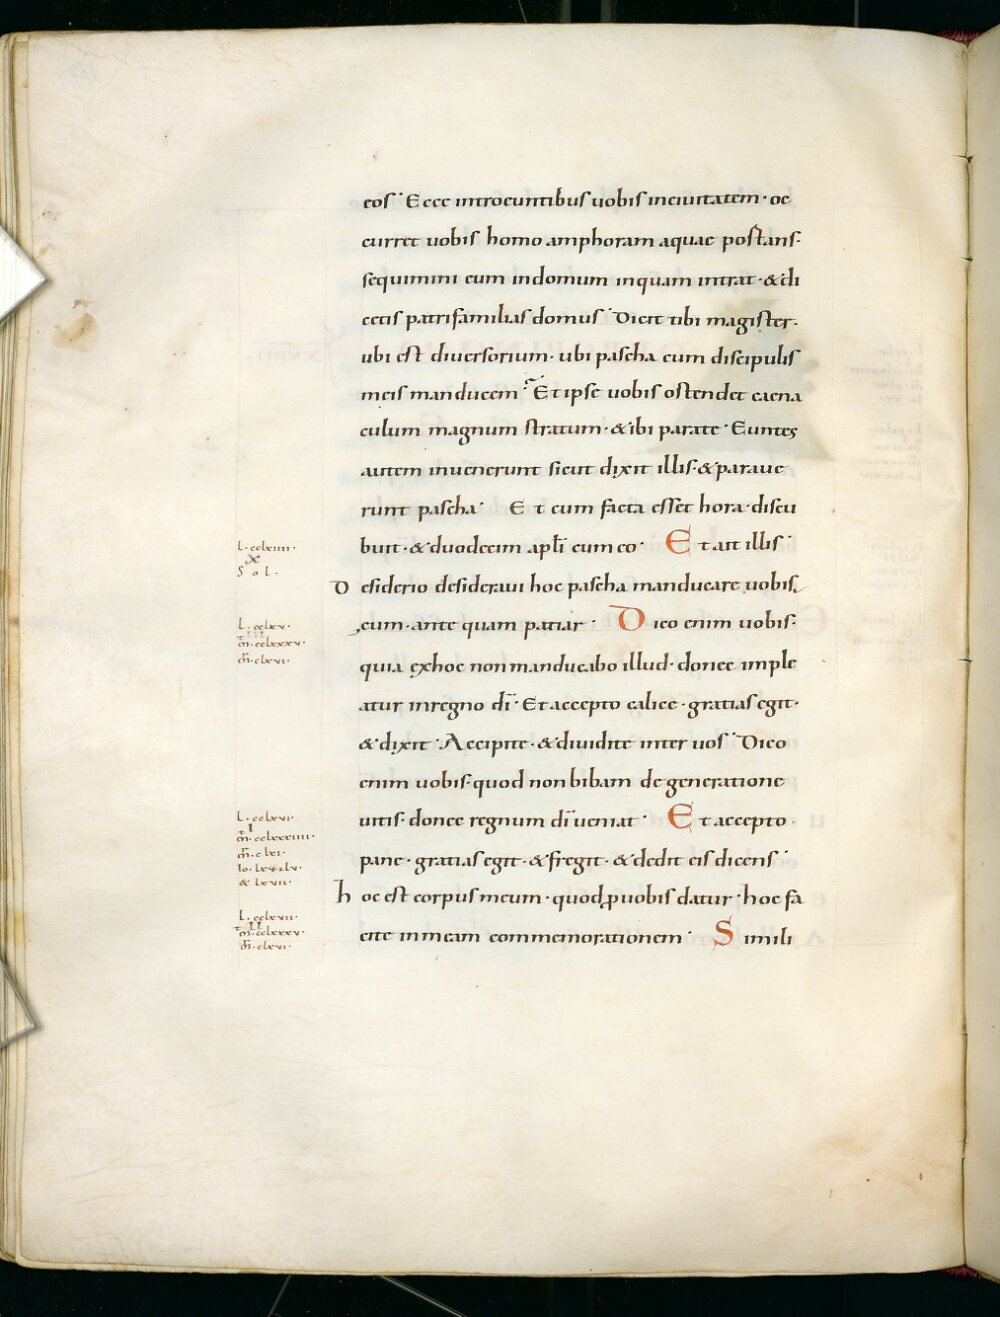 eos· Ecce introeuntibus uobis inciuitatem· oc
curret uobis homo amphoram aquae postans·
sequimini eum indomum inquam intrat· &di
cetis patrifamilias domus· Dicit tibi magister·
ubi est diuersorium· ubi pascha cum discipulis
meis manducem· Et ipse uobis ostendet caena
culum magnum stratum· &ibi parate· Euntes
autem inuenerunt sicut dixit illis· &paraue
runt pascha· Et cum facta esset hora· discu
L·cclxiiii·
X
Sol·
buit· &duodecim apłi cum eo· Et ait illis·
Desiderio desideraui hoc pascha manducare uobis
L·cclxv·
m̄·cclxxxv·
m̄·clxvi·
cum· ante quam patiar· Dico enim uobis·
quia exhoc non manducabo illud· donec imple
atur inregno dī· Et accepto calice· gratias egit·
&dixit· Accipite· &diuidite inter uos· Dico
enim uobis· quod non bibam de generatione
L·cclxvi·
uitis· donec regnum dī ueniat· Et accepto·
m̄·clxi·
lo·lxv·lv·
& lxvii·
pane· gratias egit· &fregit· &dedit eis dicens·
hoc est corpus meum· quod ꝓuobis datur· hoc fa
L·cclxvii·
II
m̄·cclxxxv·
m̄·clxvi·
cite in meam commemorationem· Simili